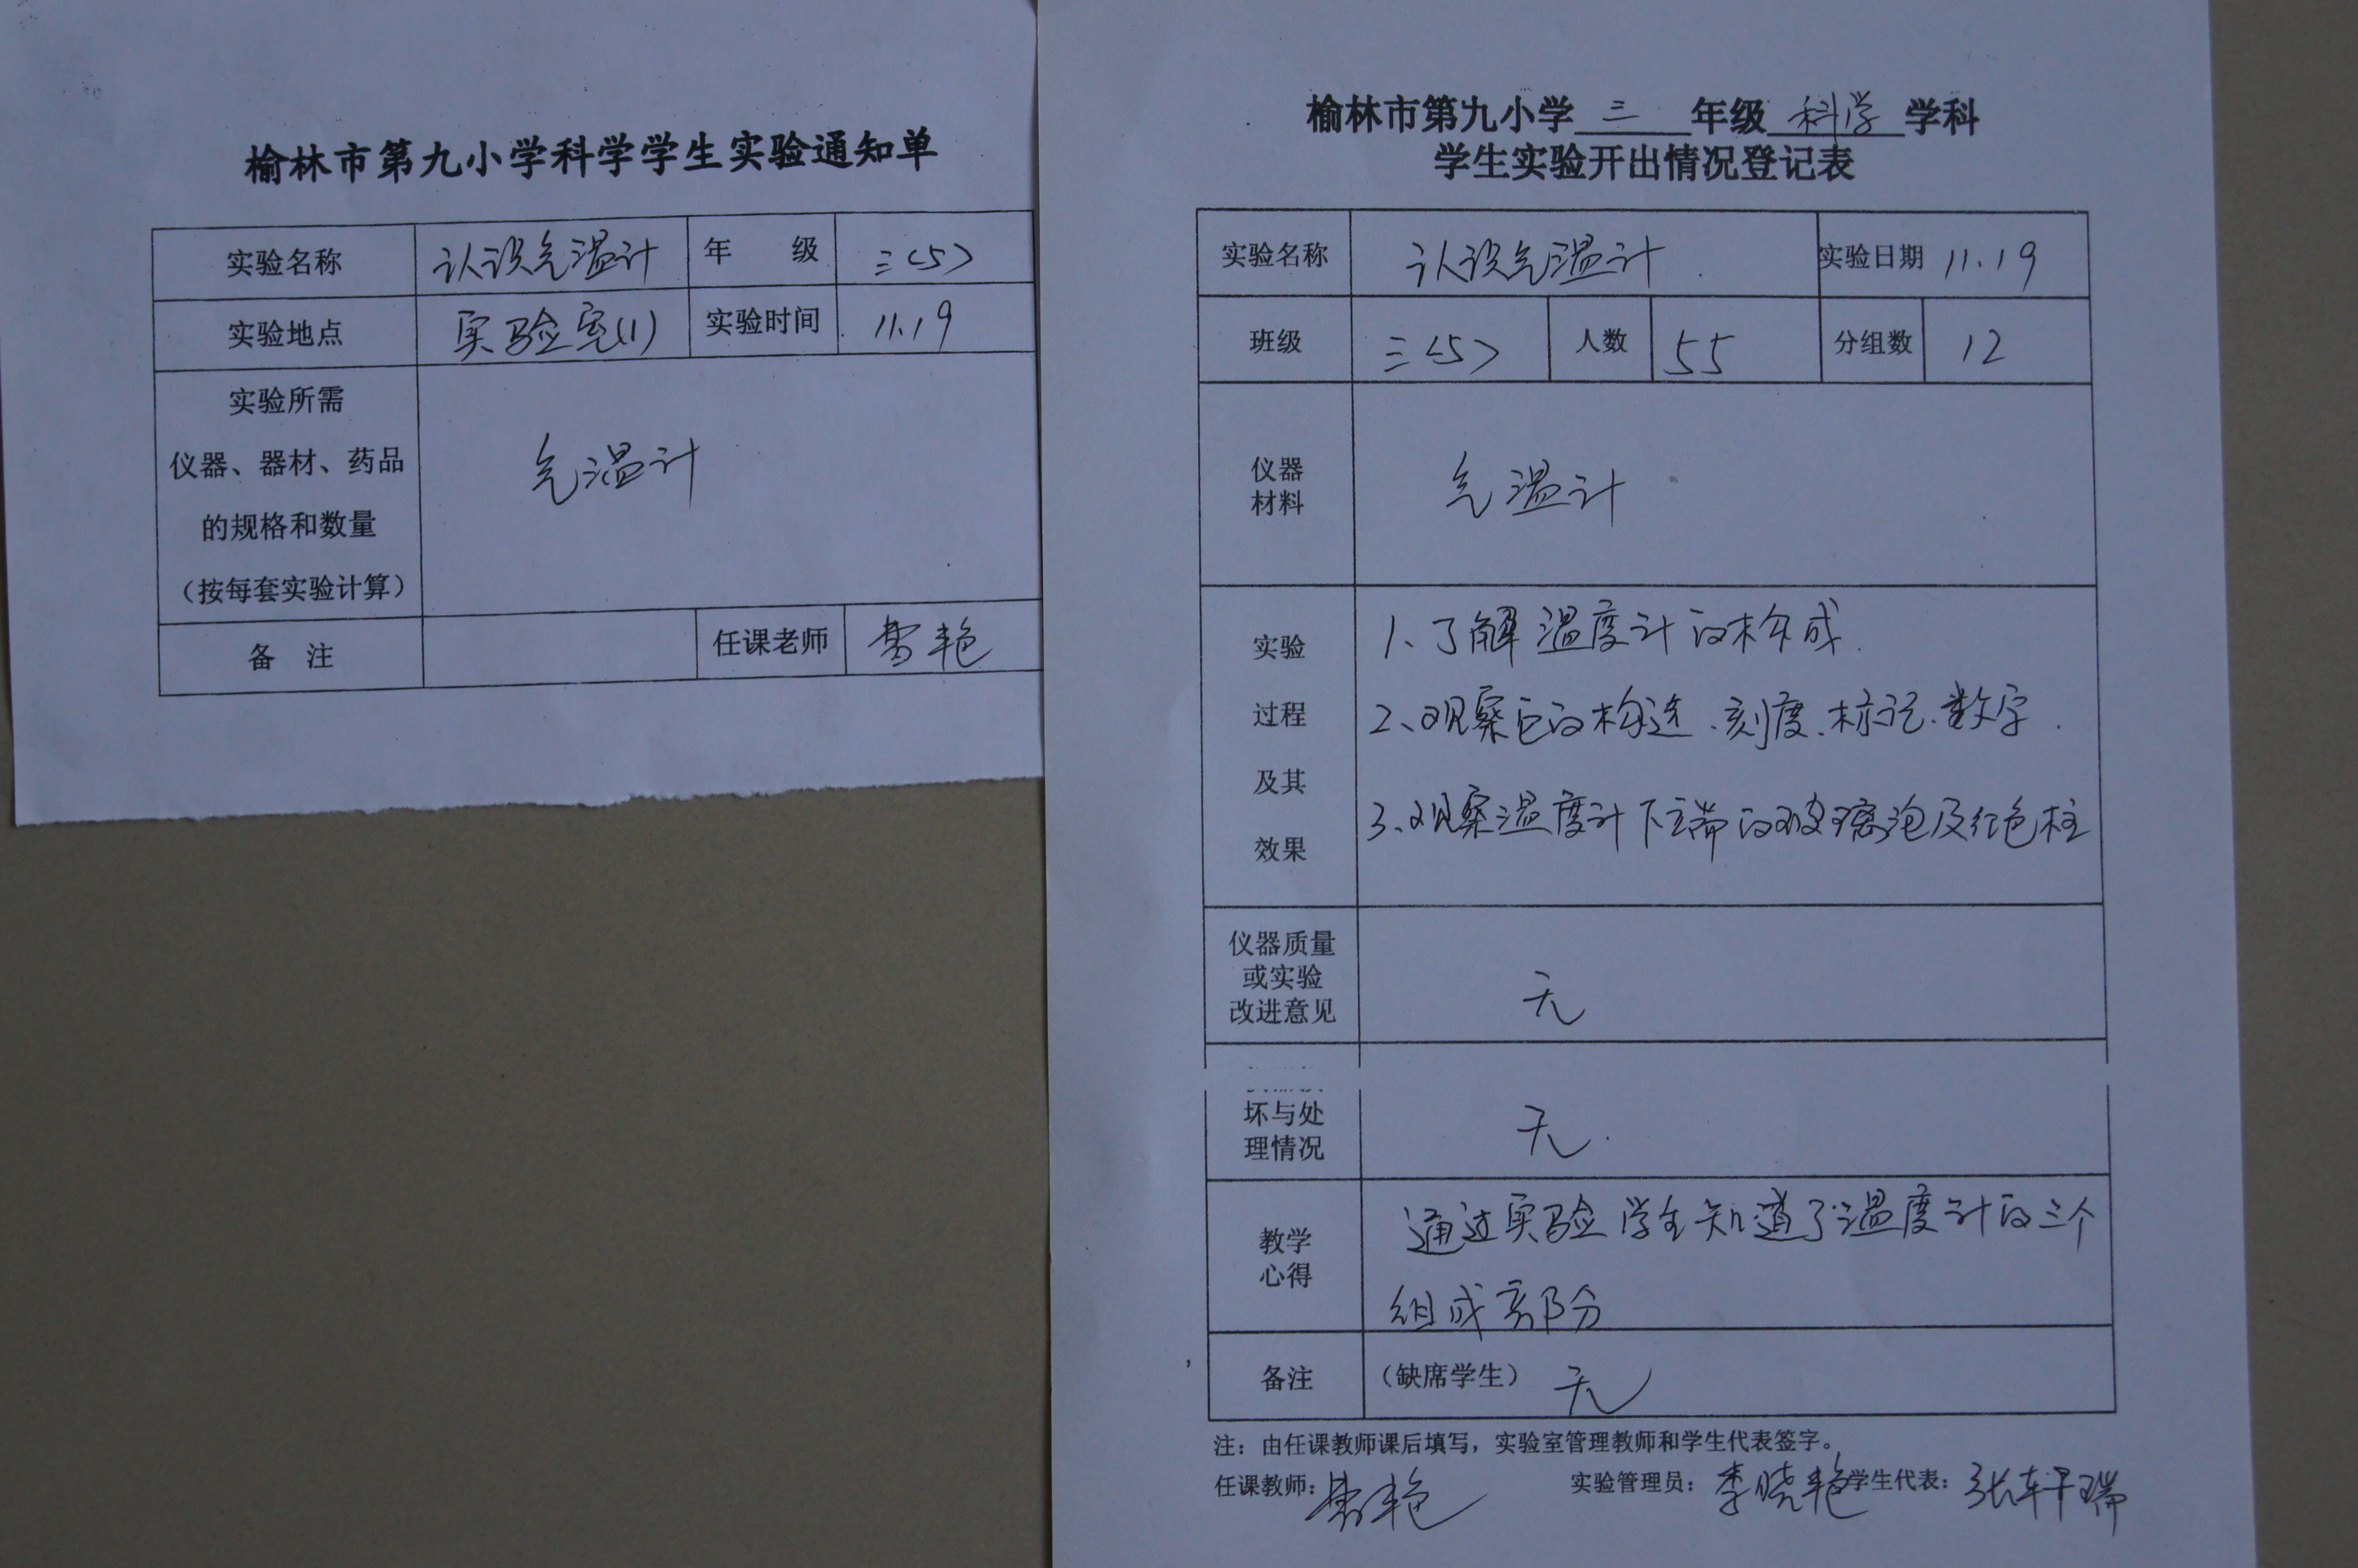 榆林市第九小学科学学生实验通知单
实验名称 认识气温计 年 级 三<5>
实验地点 实验室(1) 实验时间 11.19
实验所需
仪器、器材、药品
的规格和数量
（按每套实验计算）
气温计
备 注 任课老师 艳
榆林市第九小学 三 年级 科学 学科
学生实验开出情况登记表
实验名称 认识气温计 实验日期 11.19
班级 三<5> 人数 55 分组数 12
仪器
材料
气温计
实验
过程
及其
效果
1、了解温度计的构成.
2、观察它的构造、刻度、标记、数字.
3、观察温度计下端的玻璃泡及红色柱
仪器质量
或实验
改进意见
无
坏与处
理情况
无.
教学
心得
通过实验学生知道了温度计的三个
组成部分
备注 （缺席学生） 无
注：由任课教师课后填写，实验室管理教师和学生代表签字。
任课教师： 艳 实验管理员：李晓艳 学生代表：张轩瑞